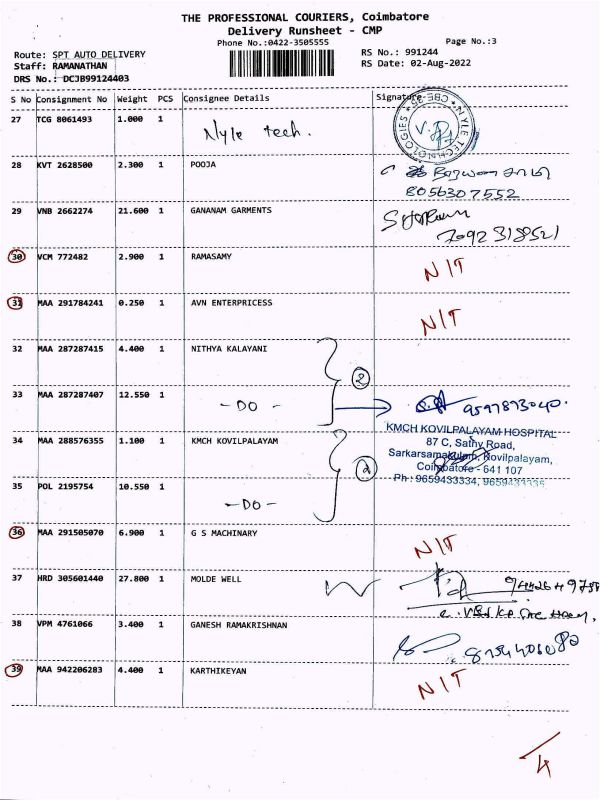 THE PROFESSIONAL COURIERS, Coimbatore
Delivery Runsheet - CMP
Phone No.:0422-3505555
Page No.:3
Route: SPT AUTO DELIVERY
RS No.: 991244
Staff: RAMANATHAN
RS Date: 02-Aug-2022
DRS No.: DCJB99124403
S No Consignment No Weight PCS Consignee Details Signature
27 TCG 8061493 1.000 1 Nyle tech.
NYLE TECHNOLOGIES CBE-35
28 KVT 2628500 2.300 1 POOJA
8056307552
29 VNB 2662274 21.600 1 GANANAM GARMENTS
7092318521
30 VCM 772482 2.900 1 RAMASAMY N/T
31 MAA 291784241 0.250 1 AVN ENTERPRICESS N/T
32 MAA 287287415 4.400 1 NITHYA KALAYANI
2
33 MAA 287287407 12.550 1 -DO- 9597873040.
34 MAA 288576355 1.100 1 KMCH KOVILPALAYAM
KMCH KOVILPALAYAM HOSPITAL
87 C, Sathy Road,
Sarkarsamakulam, Kovilpalayam,
Coimbatore - 641 107
Ph : 9659433334, 9659433335
2
35 POL 2195754 10.550 1 -DO-
36 MAA 291505070 6.900 1 G S MACHINARY N/T
37 HRD 305601440 27.800 1 MOLDE WELL
38 VPM 4761066 3.400 1 GANESH RAMAKRISHNAN
39 MAA 942206283 4.400 1 KARTHIKEYAN N/T
/4